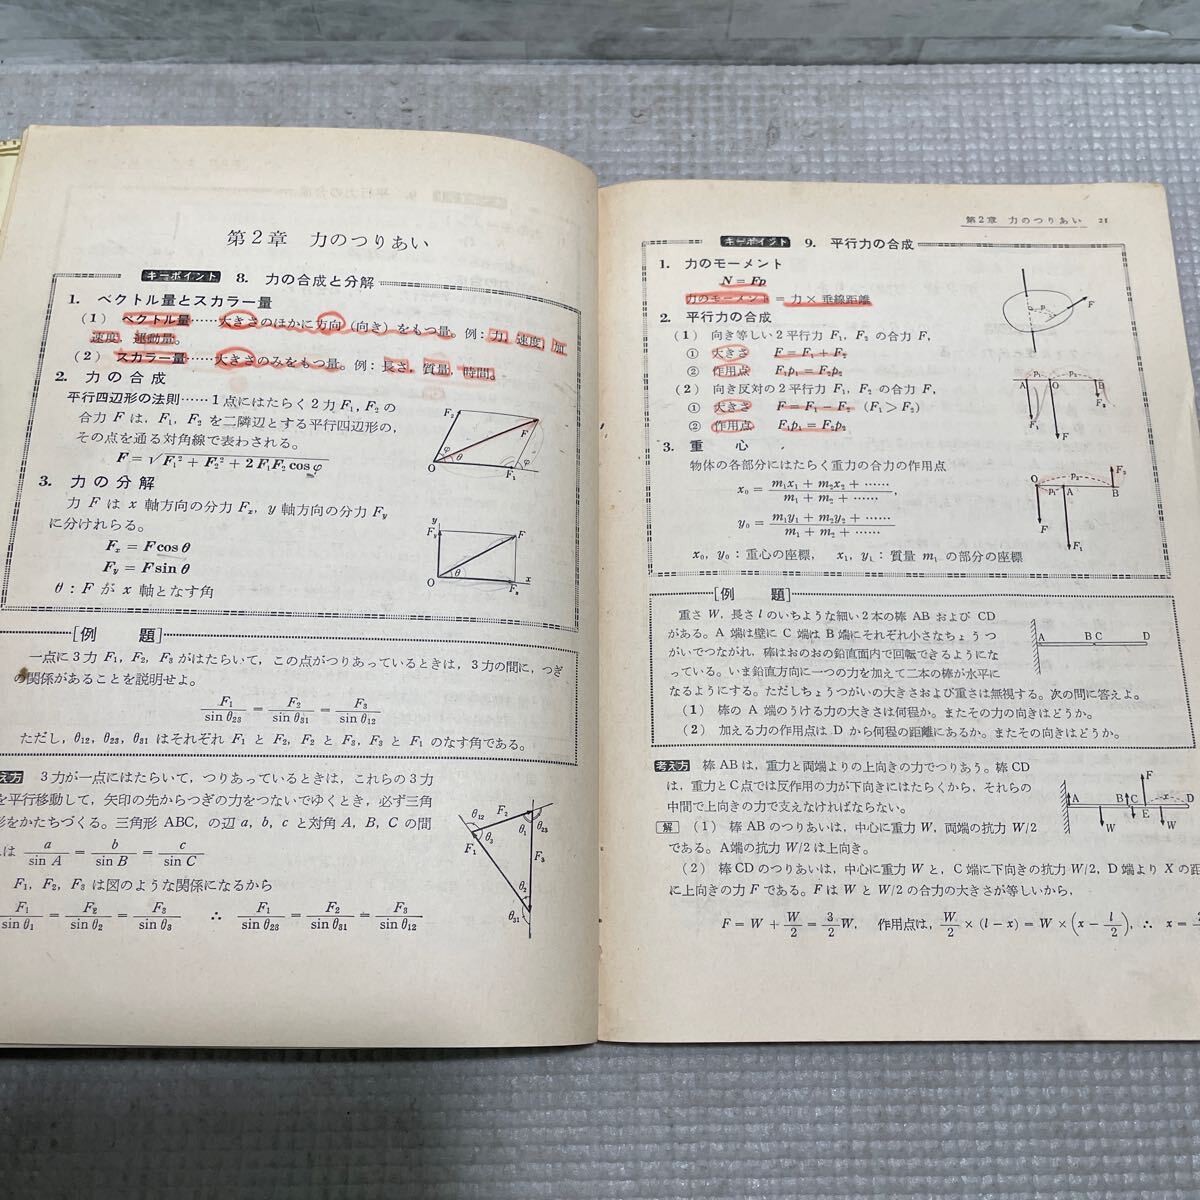 第2章 力のつりあい
キーポイント 8. 力の合成と分解
1. ベクトル量とスカラー量
(1) ベクトル量……大きさのほかに方向(向き)をもつ量。例:力,速度,加
速度,運動量。
(2) スカラー量……大きさのみをもつ量。例:長さ,質量,時間。
2. 力の合成
平行四辺形の法則……1点にはたらく2力F₁, F₂の
合力 F は, F₁, F₂ を二隣辺とする平行四辺形の,
その点を通る対角線で表わされる。
F=√F₁²+F₂²+2F₁F₂cosφ
3. 力の分解
力 F は x 軸方向の分力 Fₓ, y 軸方向の分力 Fy
に分けれらる。
Fₓ=Fcosθ
Fy=Fsinθ
θ:F が x 軸となす角
F₂
F
φ
θ
O
F₁
y
Fy
F
θ
O
Fₓ
x
[例 題]
一点に3力 F₁, F₂, F₃がはたらいて,この点がつりあっているときは,3力の間に,つぎ
の関係があることを説明せよ。
F₁/sinθ₂₃=F₂/sinθ₃₁=F₃/sinθ₁₂
ただし, θ₁₂, θ₂₃, θ₃₁ はそれぞれ F₁ と F₂, F₂ と F₃, F₃ と F₁ のなす角である。
え方 3力が一点にはたらいて,つりあっているときは,これらの3力
を平行移動して,矢印の先からつぎの力をつないでゆくとき,必ず三角
形をかたちづくる。三角形 ABC,の辺 a, b, c と対角 A, B, C の間
は a/sin A=b/sin B=c/sin C
F₁, F₂, F₃ は図のような関係になるから
F₁/sinθ₁=F₂/sinθ₂=F₃/sinθ₃ ∴ F₁/sinθ₂₃=F₂/sinθ₃₁=F₃/sinθ₁₂
θ₁₂
F₂
θ₃
θ₁
θ₂₃
F₁
F₃
θ₂
θ₃₁
第2章 力のつりあい 21
キーポイント 9. 平行力の合成
1. 力のモーメント
N=Fp
力のモーメント=力×垂線距離
2. 平行力の合成
(1) 向き等しい2平行力 F₁, F₂ の合力 F,
① 大きさ F=F₁+F₂
② 作用点 F₁p₁=F₂p₂
(2) 向き反対の2平行力 F₁, F₂ の合力 F,
① 大きさ F=F₁−F₂ (F₁>F₂)
② 作用点 F₁p₁=F₂p₂
3. 重 心
物体の各部分にはたらく重力の合力の作用点
x₀=m₁x₁+m₂x₂+……/m₁+m₂+……,
y₀=m₁y₁+m₂y₂+……/m₁+m₂+……
x₀, y₀:重心の座標, x₁, y₁:質量 m₁ の部分の座標
F
p
p₁
p₂
A
O
B
F₂
F
F₂
p₂
O
p₁
A
B
F
F₁
[例 題]
重さ W, 長さ l のいちような細い2本の棒 AB および CD
がある。A 端は壁に C 端は B 端にそれぞれ小さなちょうつ
がいでつながれ,棒はおのおの鉛直面内で回転できるようにな
っている。いま鉛直方向に一つの力を加えて二本の棒が水平に
なるようにする。ただしちょうつがいの大きさおよび重さは無視する。次の問に答えよ。
(1) 棒の A 端のうける力の大きさは何程か。またその力の向きはどうか。
(2) 加える力の作用点は D から何程の距離にあるか。またその向きはどうか。
A
B C
D
考え方 棒 AB は,重力と両端よりの上向きの力でつりあう。棒 CD
は,重力とC点では反作用の力が下向きにはたらくから,それらの
中間で上向きの力で支えなければならない。
解 (1) 棒 AB のつりあいは,中心に重力 W, 両端の抗力 W/2
である。A端の抗力 W/2 は上向き。
(2) 棒 CD のつりあいは,中心に重力 W と,C 端に下向きの抗力 W/2, D 端より X の距
に上向きの力 F である。F は W と W/2 の合力の大きさが等しいから,
F=W+W/2=3/2W, 作用点は, W/2×(l−x)=W×(x−l/2), ∴ x=
A
B
C
F
x
D
E
W
W